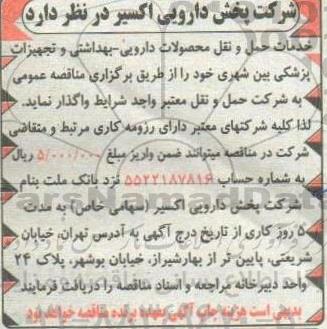 شرکت پخش دارویی اکسیر در نظر دارد
خدمات حمل و نقل محصولات دارویی-بهداشتی و تجهیزات
پزشکی بین شهری خود را از طریق برگزاری مناقصه عمومی
به شرکت حمل و نقل معتبر واجد شرایط واگذار نماید.
لذا کلیه شرکتهای معتبر دارای رزومه کاری مرتبط و متقاضی
شرکت در مناقصه میتوانند ضمن واریز مبلغ ۵/۰۰۰/۰۰۰ ریال
به شماره حساب ۵۵۲۲۱۸۷۸۱۶ نزد بانک ملت بنام
شرکت پخش دارویی اکسیر (سهامی خاص) به مدت
۵ روز کاری از تاریخ درج آگهی به آدرس تهران، خیابان
شریعتی، پایین تر از بهارشیراز، خیابان بوشهر، پلاک ۲۴
واحد دبیرخانه مراجعه و اسناد مناقصه را دریافت فرمایند
بدیهی است هزینه چاپ آگهی بعهده برنده مناقصه خواهد بود